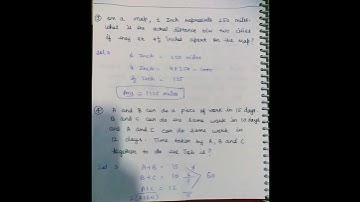 on a map, 1 Inch represents 250 miles.
what is the actual distance b/w two cities
if they are 4½ Inches apart on the map?
Sol:
1 Inch = 250 miles
4 Inch = 4×250 = 1000
½ Inch = 125
Ans = 1125 miles
A and B can do a piece of work in 15 days.
B and C can do the same work in 10 days
and A and C can do same work in
12 days. Time taken by A, B and C
together to do the Job is?
Sol:
A+B = 15
B+C = 10
A+C = 12
60